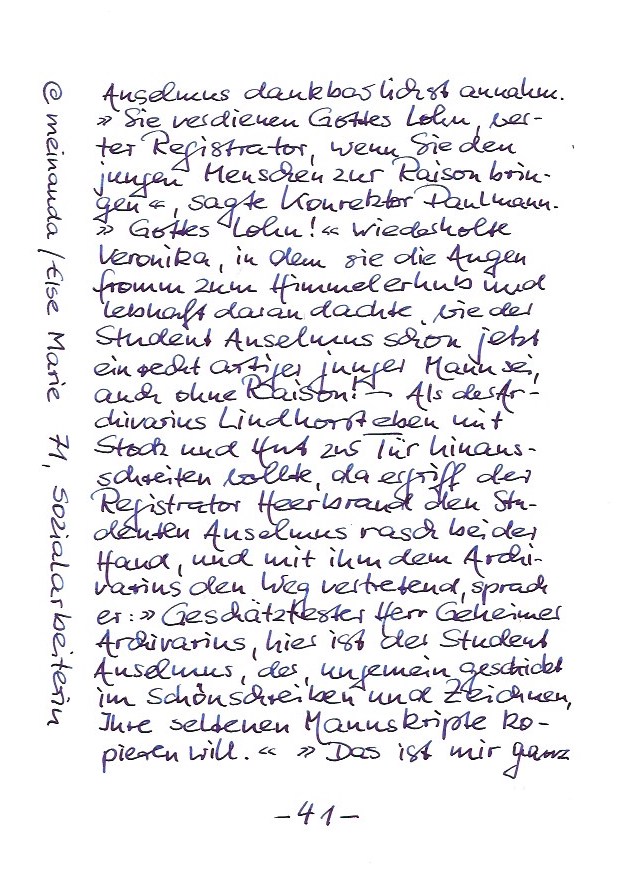 Anselmus dankbarlichst annahm.
» Sie verdienen Gottes Lohn, wer-
ter Registrator, wenn Sie den
jungen Menschen zur Raison brin-
gen «, sagte Konrektor Paulmann.
» Gottes Lohn! « wiederholte
Veronika, in dem sie die Augen
fromm zum Himmel erhub und
lebhaft daran dachte, wie der
Student Anselmus schon jetzt
ein recht artiger junger Mann sei,
auch ohne Raison! – Als der Ar-
chivarius Lindhorst eben mit
Stock und Hut zur Tür hinaus-
schreiten wollte, da ergriff der
Registrator Heerbrand den Stu-
denten Anselmus rasch bei der
Hand, und mit ihm dem Archi-
varius den Weg vertretend, sprach
er: » Geschätztester Herr Geheimer
Archivarius, hier ist der Student
Anselmus, der, ungemein geschickt
im Schönschreiben und Zeichnen,
Ihre seltenen Manuskripte ko-
pieren will. « » Das ist mir ganz
– 41 –
@ meinanda / Else Marie 71, Sozialarbeiterin